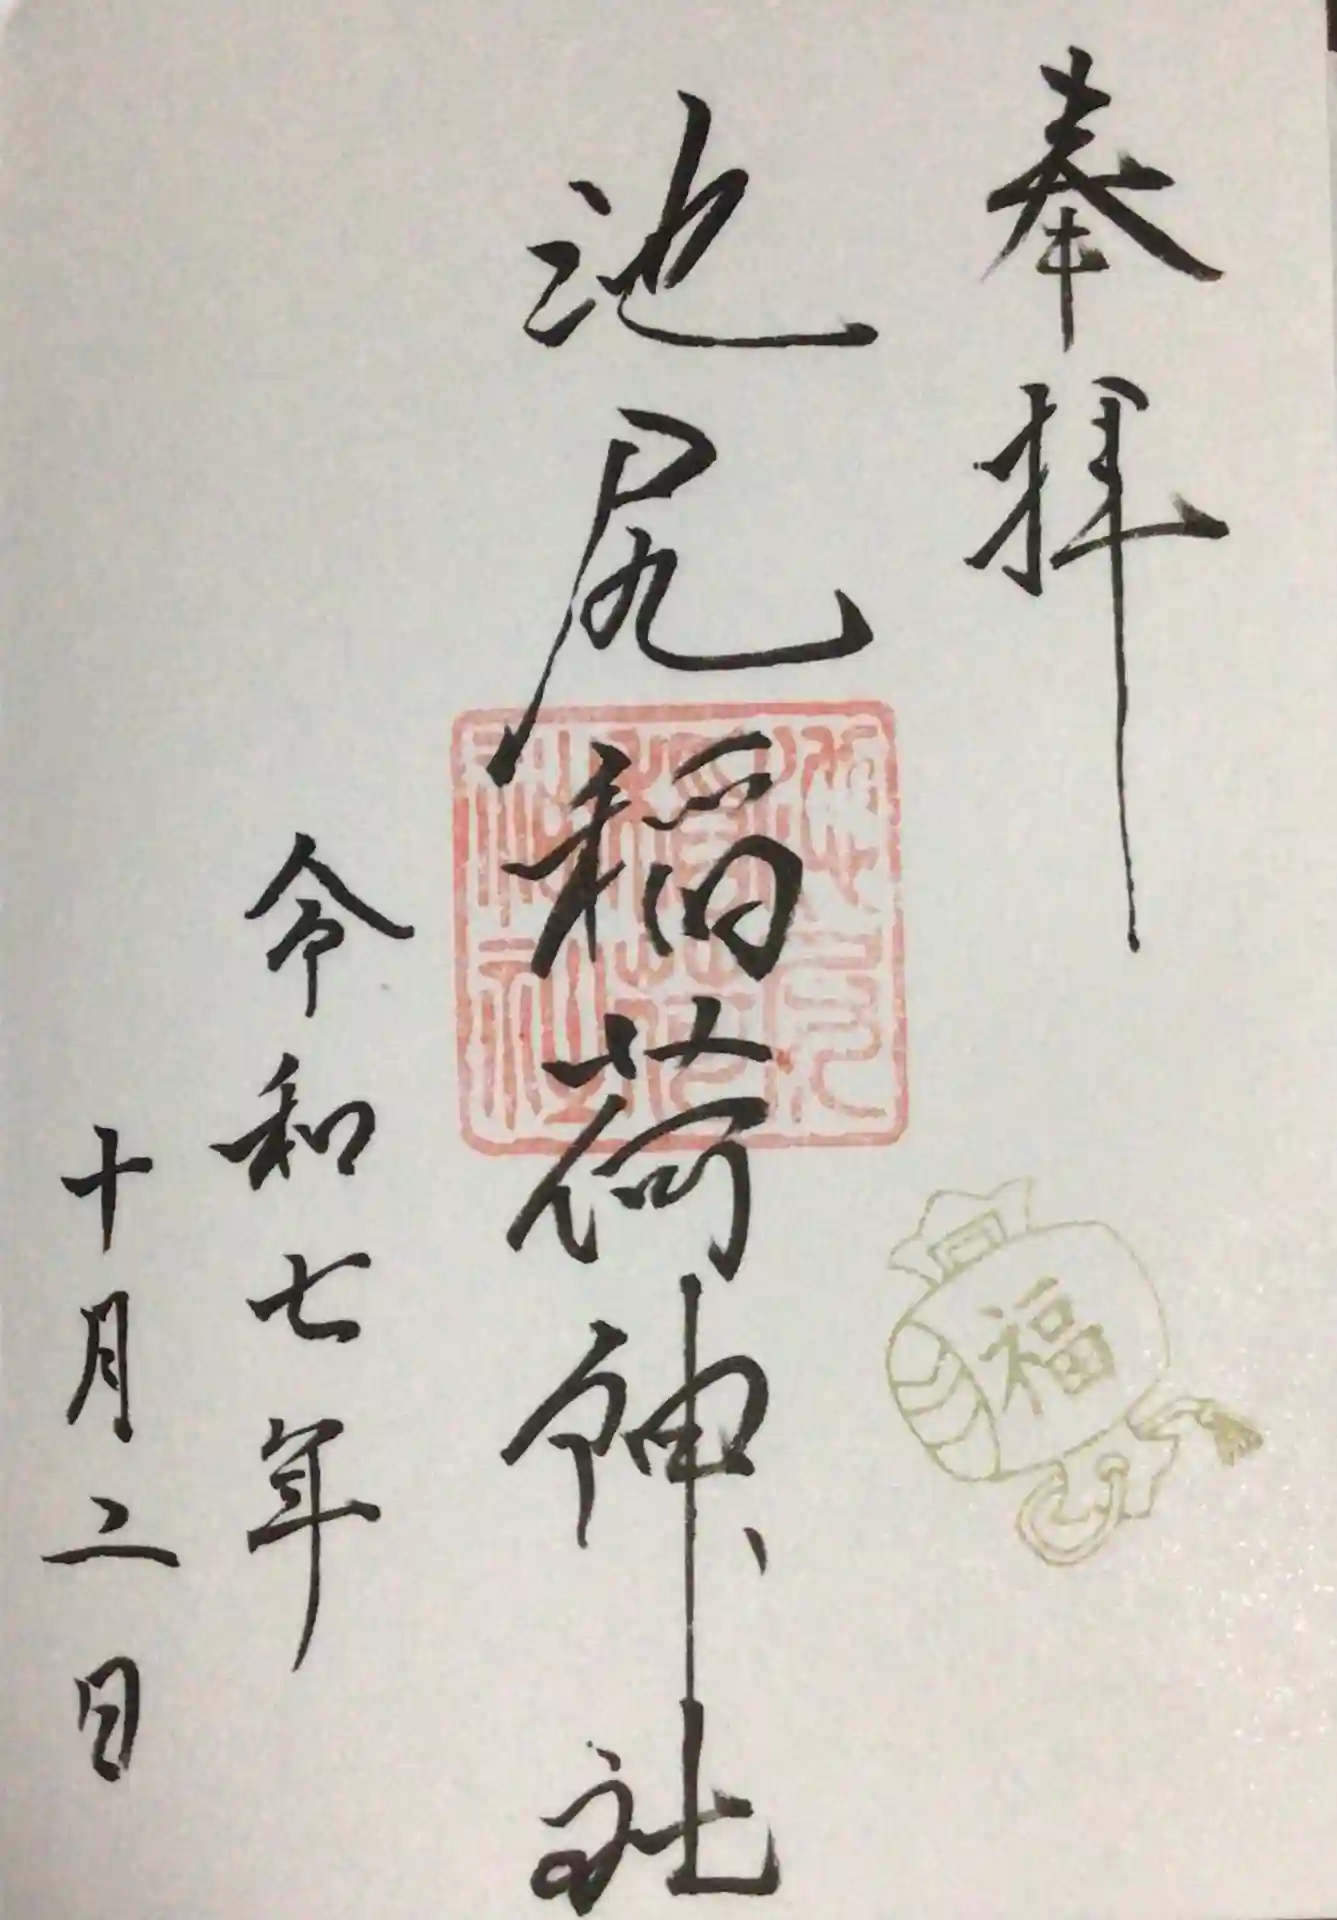 奉拝
池尻稲荷神社
池尻稲荷神社
福
令和七年
十月二日